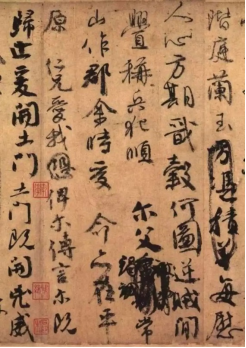 階庭蘭玉方憑積善每慰
人心方期戩穀何圖逆賊閒
釁稱兵犯順 尔父竭誠常
山作郡余時受 命亦在平
原 仁兄愛我恐俾尔傳言尔既
歸止爰開土門土門既開凶威